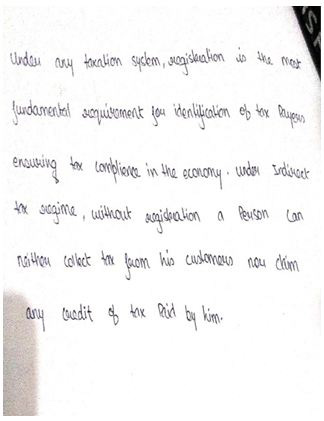 under any taxation system, registration is the most
fundamental requirement for identification of tax Payers
ensuring tax complience in the economy. under Indirect
tax regime, without registration a Person can
neither collect tax from his customers nor claim
any credit of tax Paid by him.